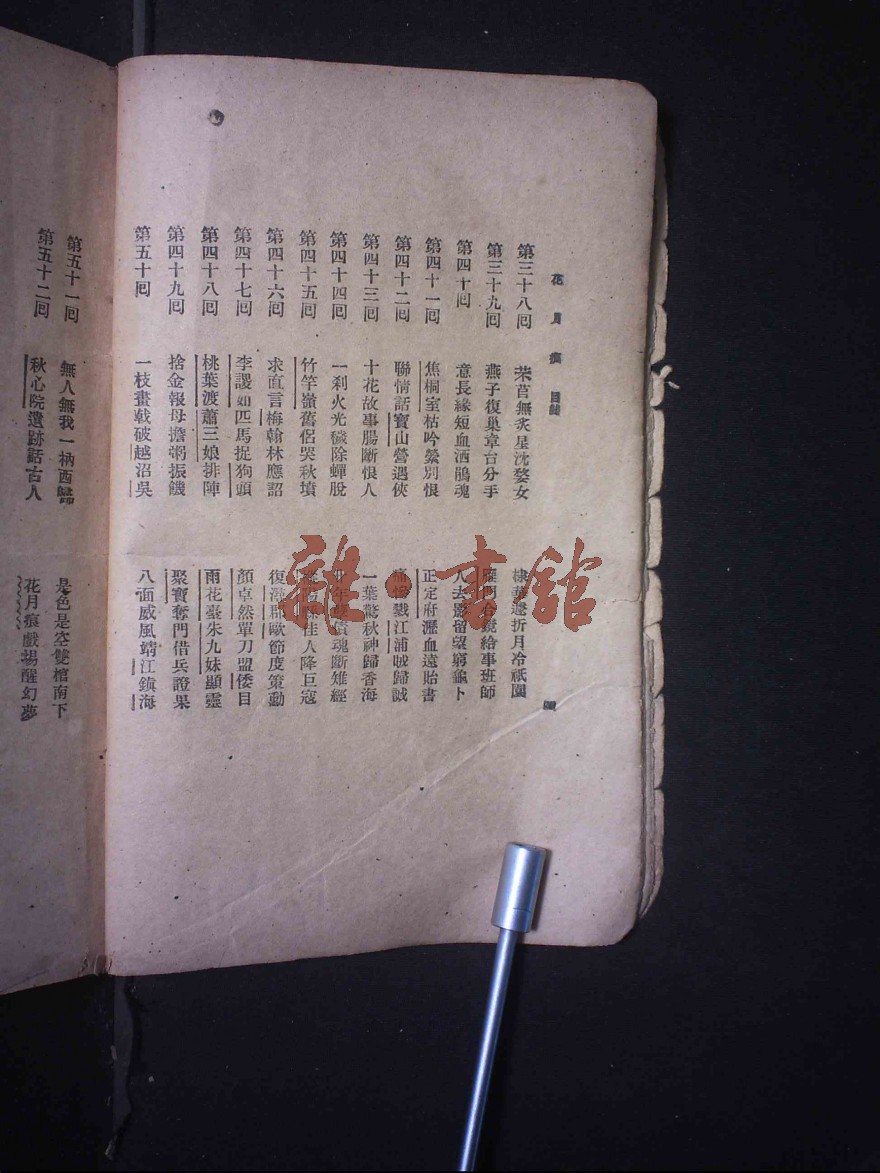 花月痕 目錄
四
第三十八回 芣苢無灾星沈婺女 棣華遽折月冷祇園
第三十九回 燕子復巢章台分手 雁門合鏡給事班師
第四十回 意長緣短血洒鵑魂 人去影留望窮龜卜
第四十一回 焦桐室枯吟縈別恨 正定府瀝血遠貽書
第四十二回 聯情話寶山營遇俠 痛惜戴江浦賊歸誠
第四十三回 十花故事腸斷恨人 一葉驚秋神歸香海
第四十四回 一刹火光穢除蟬脫 廿年孽債魂斷雉經
第四十五回 竹竿嶺舊侶哭秋墳 縣佳人降巨寇
第四十六回 求直言梅翰林應詔 復淮郡歐節度策勳
第四十七回 李謖如匹馬捉狗頭 顏卓然單刀盟倭目
第四十八回 桃葉渡蕭三娘排陣 雨花臺朱九妹顯靈
第四十九回 捨金報母擔粥振饑 聚寶奪門借兵證果
第五十回 一枝畫戟破越沼吳 八面威風靖江鎮海
第五十一回 無人無我一柄西歸 是色是空雙棺南下
第五十二回 秋心院遺跡話古人 花月痕戲場醒幻夢
雜·書館